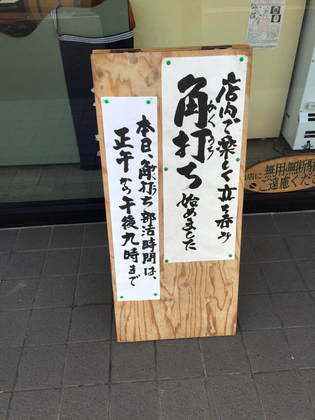 店内で楽しく立ち呑み
角打ち始めました
かくうち
本日、角打ち部活時間は、
正午から午後九時まで
無用・無断駐
ご遠慮くださ